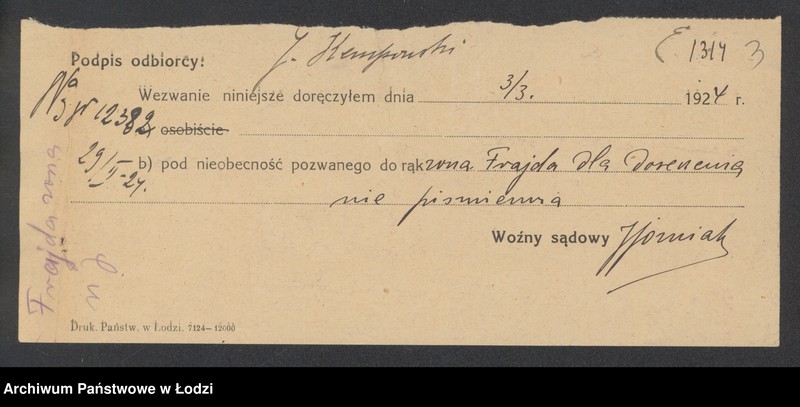 1314 3
Podpis odbiorcy: J. Kempowski
Wezwanie niniejsze doręczyłem dnia 3/3. 1924 r.
Na
12382
a) osobiście
29/II-24.
b) pod nieobecność pozwanego do rąk żona Frajda dla doręczenia
nie piśmienna
Woźny sądowy
Frajda żona
Druk. Państw. w Łodzi. 7124—12000
Archiwum Państwowe w Łodzi